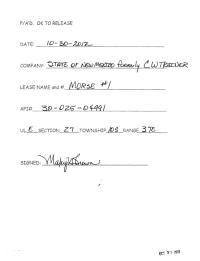 P/A'D. OK TO RELEASE
DATE: 10-30-2012
COMPANY: STATE OF NEW MEXICO formerly C.W. TRAINER
LEASE NAME and #: MORSE #1
API# 30-025-04991
UL E SECTION 27 TOWNSHIP 10S RANGE 37E
SIGNED:
OCT 31 2012